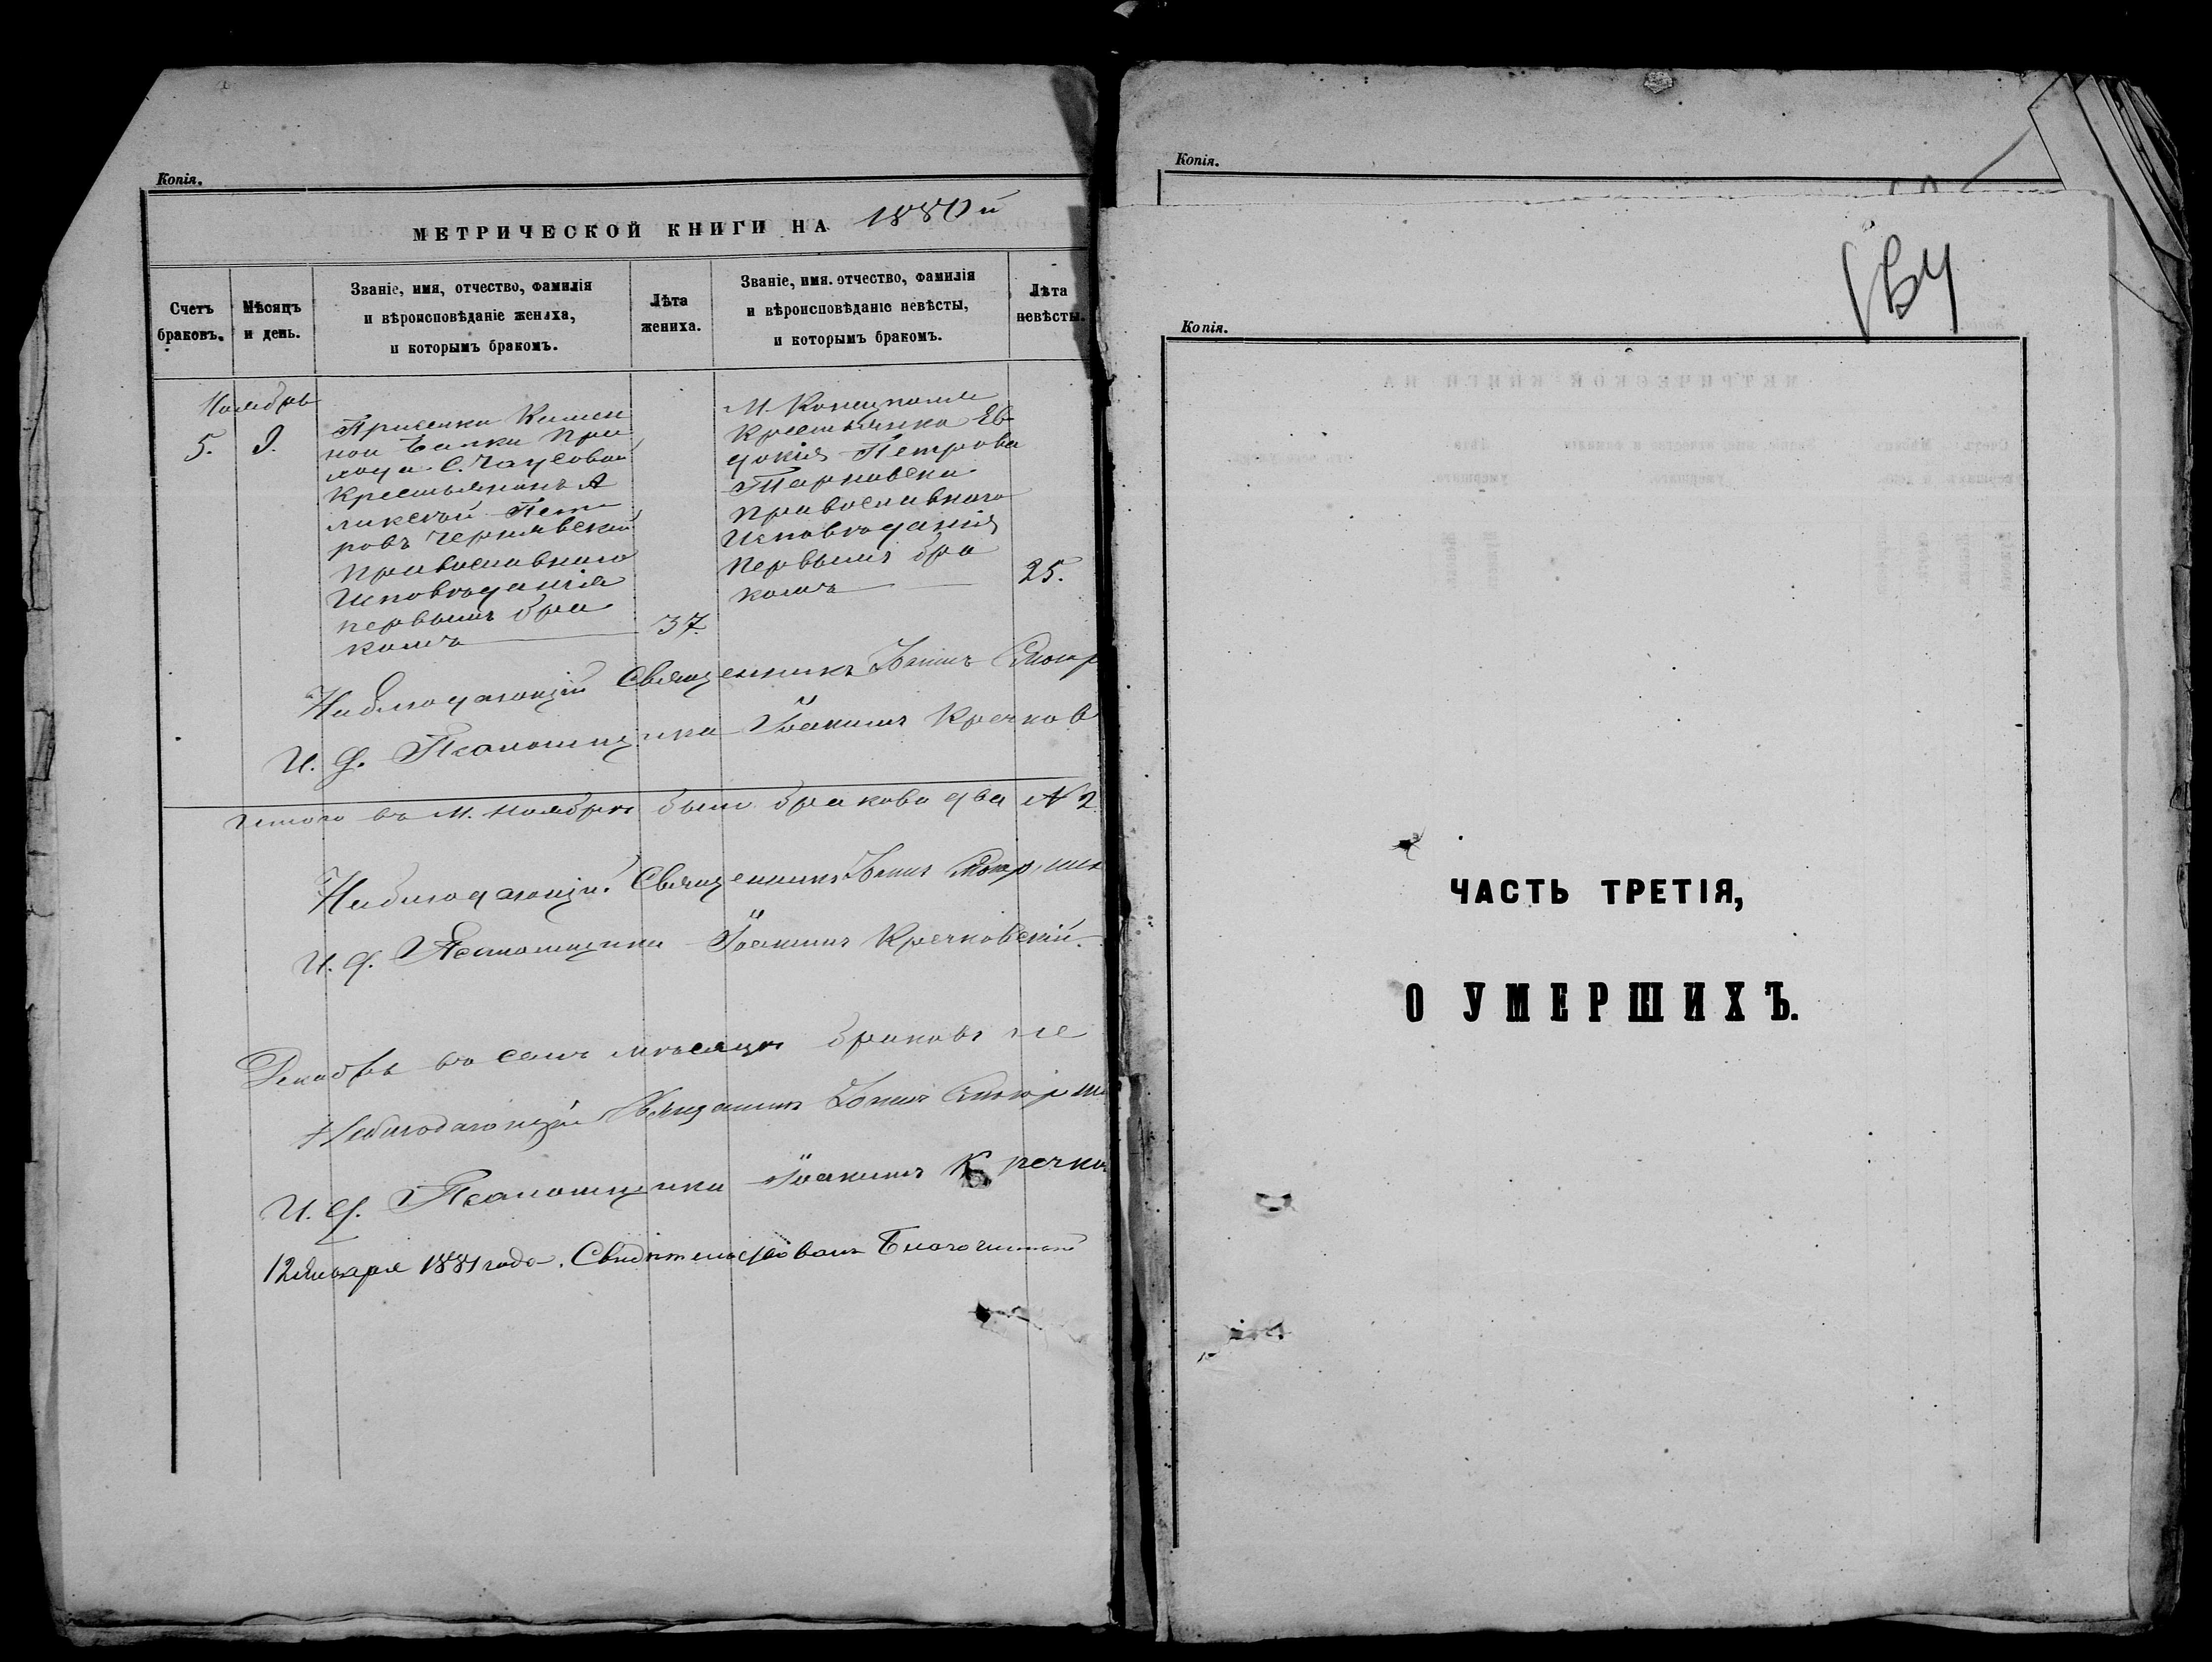 Копія.
МЕТРИЧЕСКОЙ КНИГИ НА 1880й
Счетъ браковъ.
Мѣсяцъ и день.
Званіе, имя, отчество, фамилія
и вѣроисповѣданіе жениха,
и которымъ бракомъ.
Лѣта жениха.
Званіе, имя. отчество, фамилія
и вѣроисповѣданіе невѣсты,
и которымъ бракомъ.
Лѣта невѣсты.
Ноябрь
5. 9.
Присилки Камен
ной Балки При
хода С. Чаусовой
Крестьянинъ А
лиексѣй Пет
ровъ Чернявский
Православнаго
Исповѣданія
первымъ бра
комъ
37.
М. Конецполя
Крестьянка Ев
докія Петрова
Тарновска
Православнаго
Исповѣданія
Первымъ бра
комъ
25.
Наблюдающій Священникъ Іоаннъ
И. Д. Псаломщика Іоакимъ Кречков
Итого въ М. Ноябрѣ было браковъ два № 2.
Наблюдающій Священникъ Іоаннъ
И. Д. Псаломщика Іоакимъ Кречковскій.
Декабрь въ семъ мѣсяцѣ браковъ не
Наблюдающій Священникъ Іоаннъ
И. Д. Псаломщика Іоакимъ Кречко
12 Января 1881 года. Свидѣтельствовалъ Благочинный
Копія.
Копія.
ЧАСТЬ ТРЕТІЯ,
О УМЕРШИХЪ.